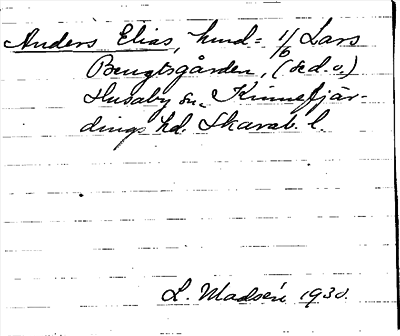 Anders Elias, hmd = 1/6 Lars
Bengtsgården, (se d. o.)
Husaby sn, Kinnefjär-
dings hd. Skarab. l.
L. Madsén 1930.